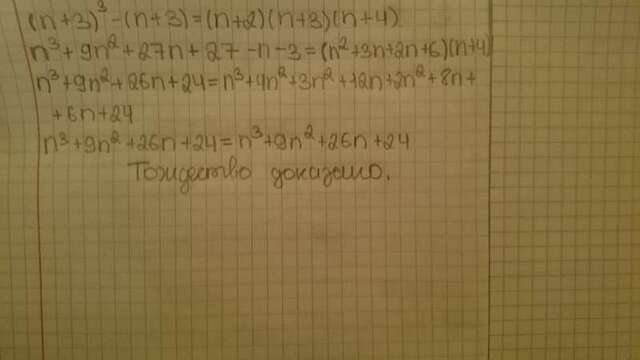 (n+3)³-(n+3)=(n+2)(n+3)(n+4)
n³+9n²+27n+27-n-3=(n²+3n+2n+6)(n+4)
n³+9n²+26n+24=n³+4n²+3n²+12n+2n²+8n+
+6n+24
n³+9n²+26n+24=n³+9n²+26n+24
Тождество доказано.